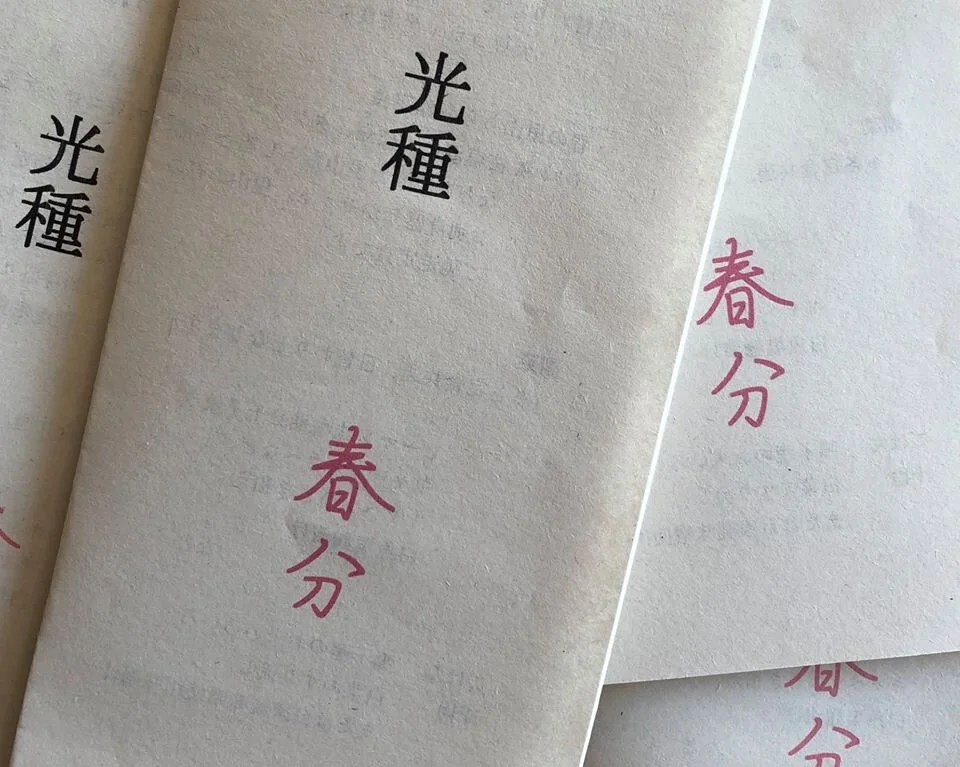 光種
光種
春分
春分
春分